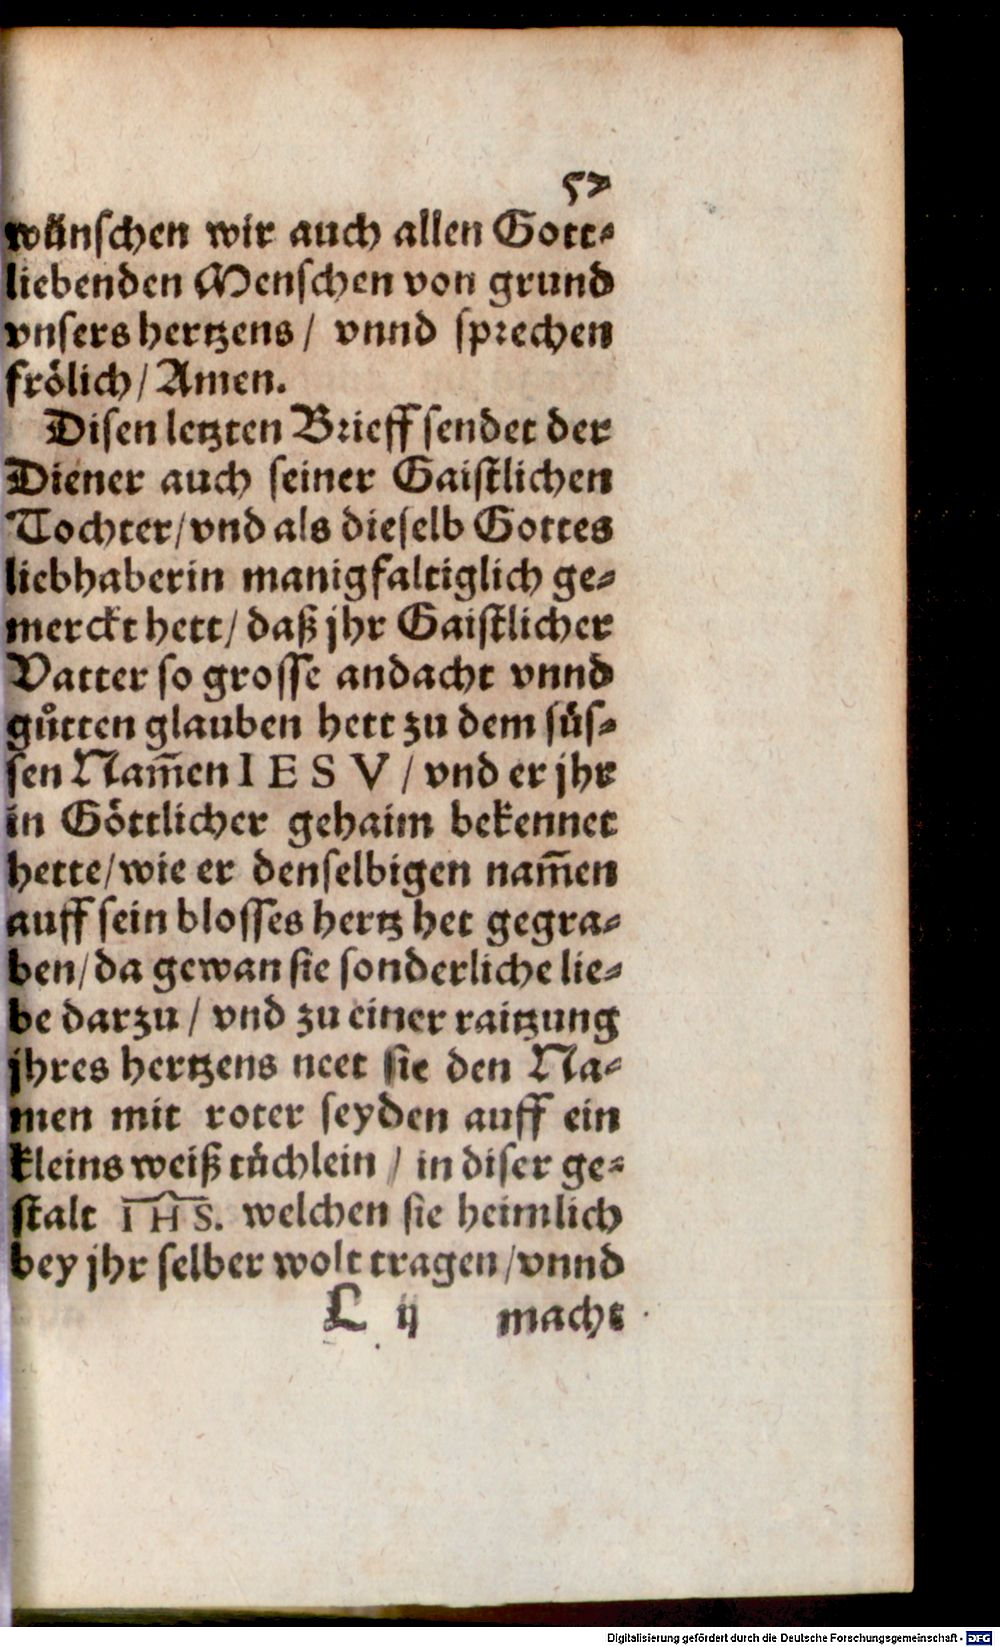 57
wünschen wir auch allen Gott⸗
liebenden Menschen von grund
vnsers hertzens / vnnd sprechen
frölich / Amen.
Disen letzten Brieff sendet der
Diener auch seiner Gaistlichen
Tochter / vnd als dieselb Gottes
liebhaberin manigfaltiglich ge⸗
merckt hett / daß jhr Gaistlicher
Vatter so grosse andacht vnnd
gůtten glauben hett zu dem süs⸗
sen Nam̃en I E S V / vnd er jhr
in Göttlicher gehaim bekennet
hette / wie er denselbigen nam̃en
auff sein blosses hertz het gegra⸗
ben / da gewan sie sonderliche lie⸗
be darzu / vnd zu einer raitzung
jhres hertzens neet sie den Na⸗
men mit roter seyden auff ein
kleins weiß tüchlein / in diser ge⸗
stalt I H S. welchen sie heimlich
bey jhr selber wolt tragen / vnnd
L ij macht
Digitalisierung gefördert durch die Deutsche Forschungsgemeinschaft - DFG